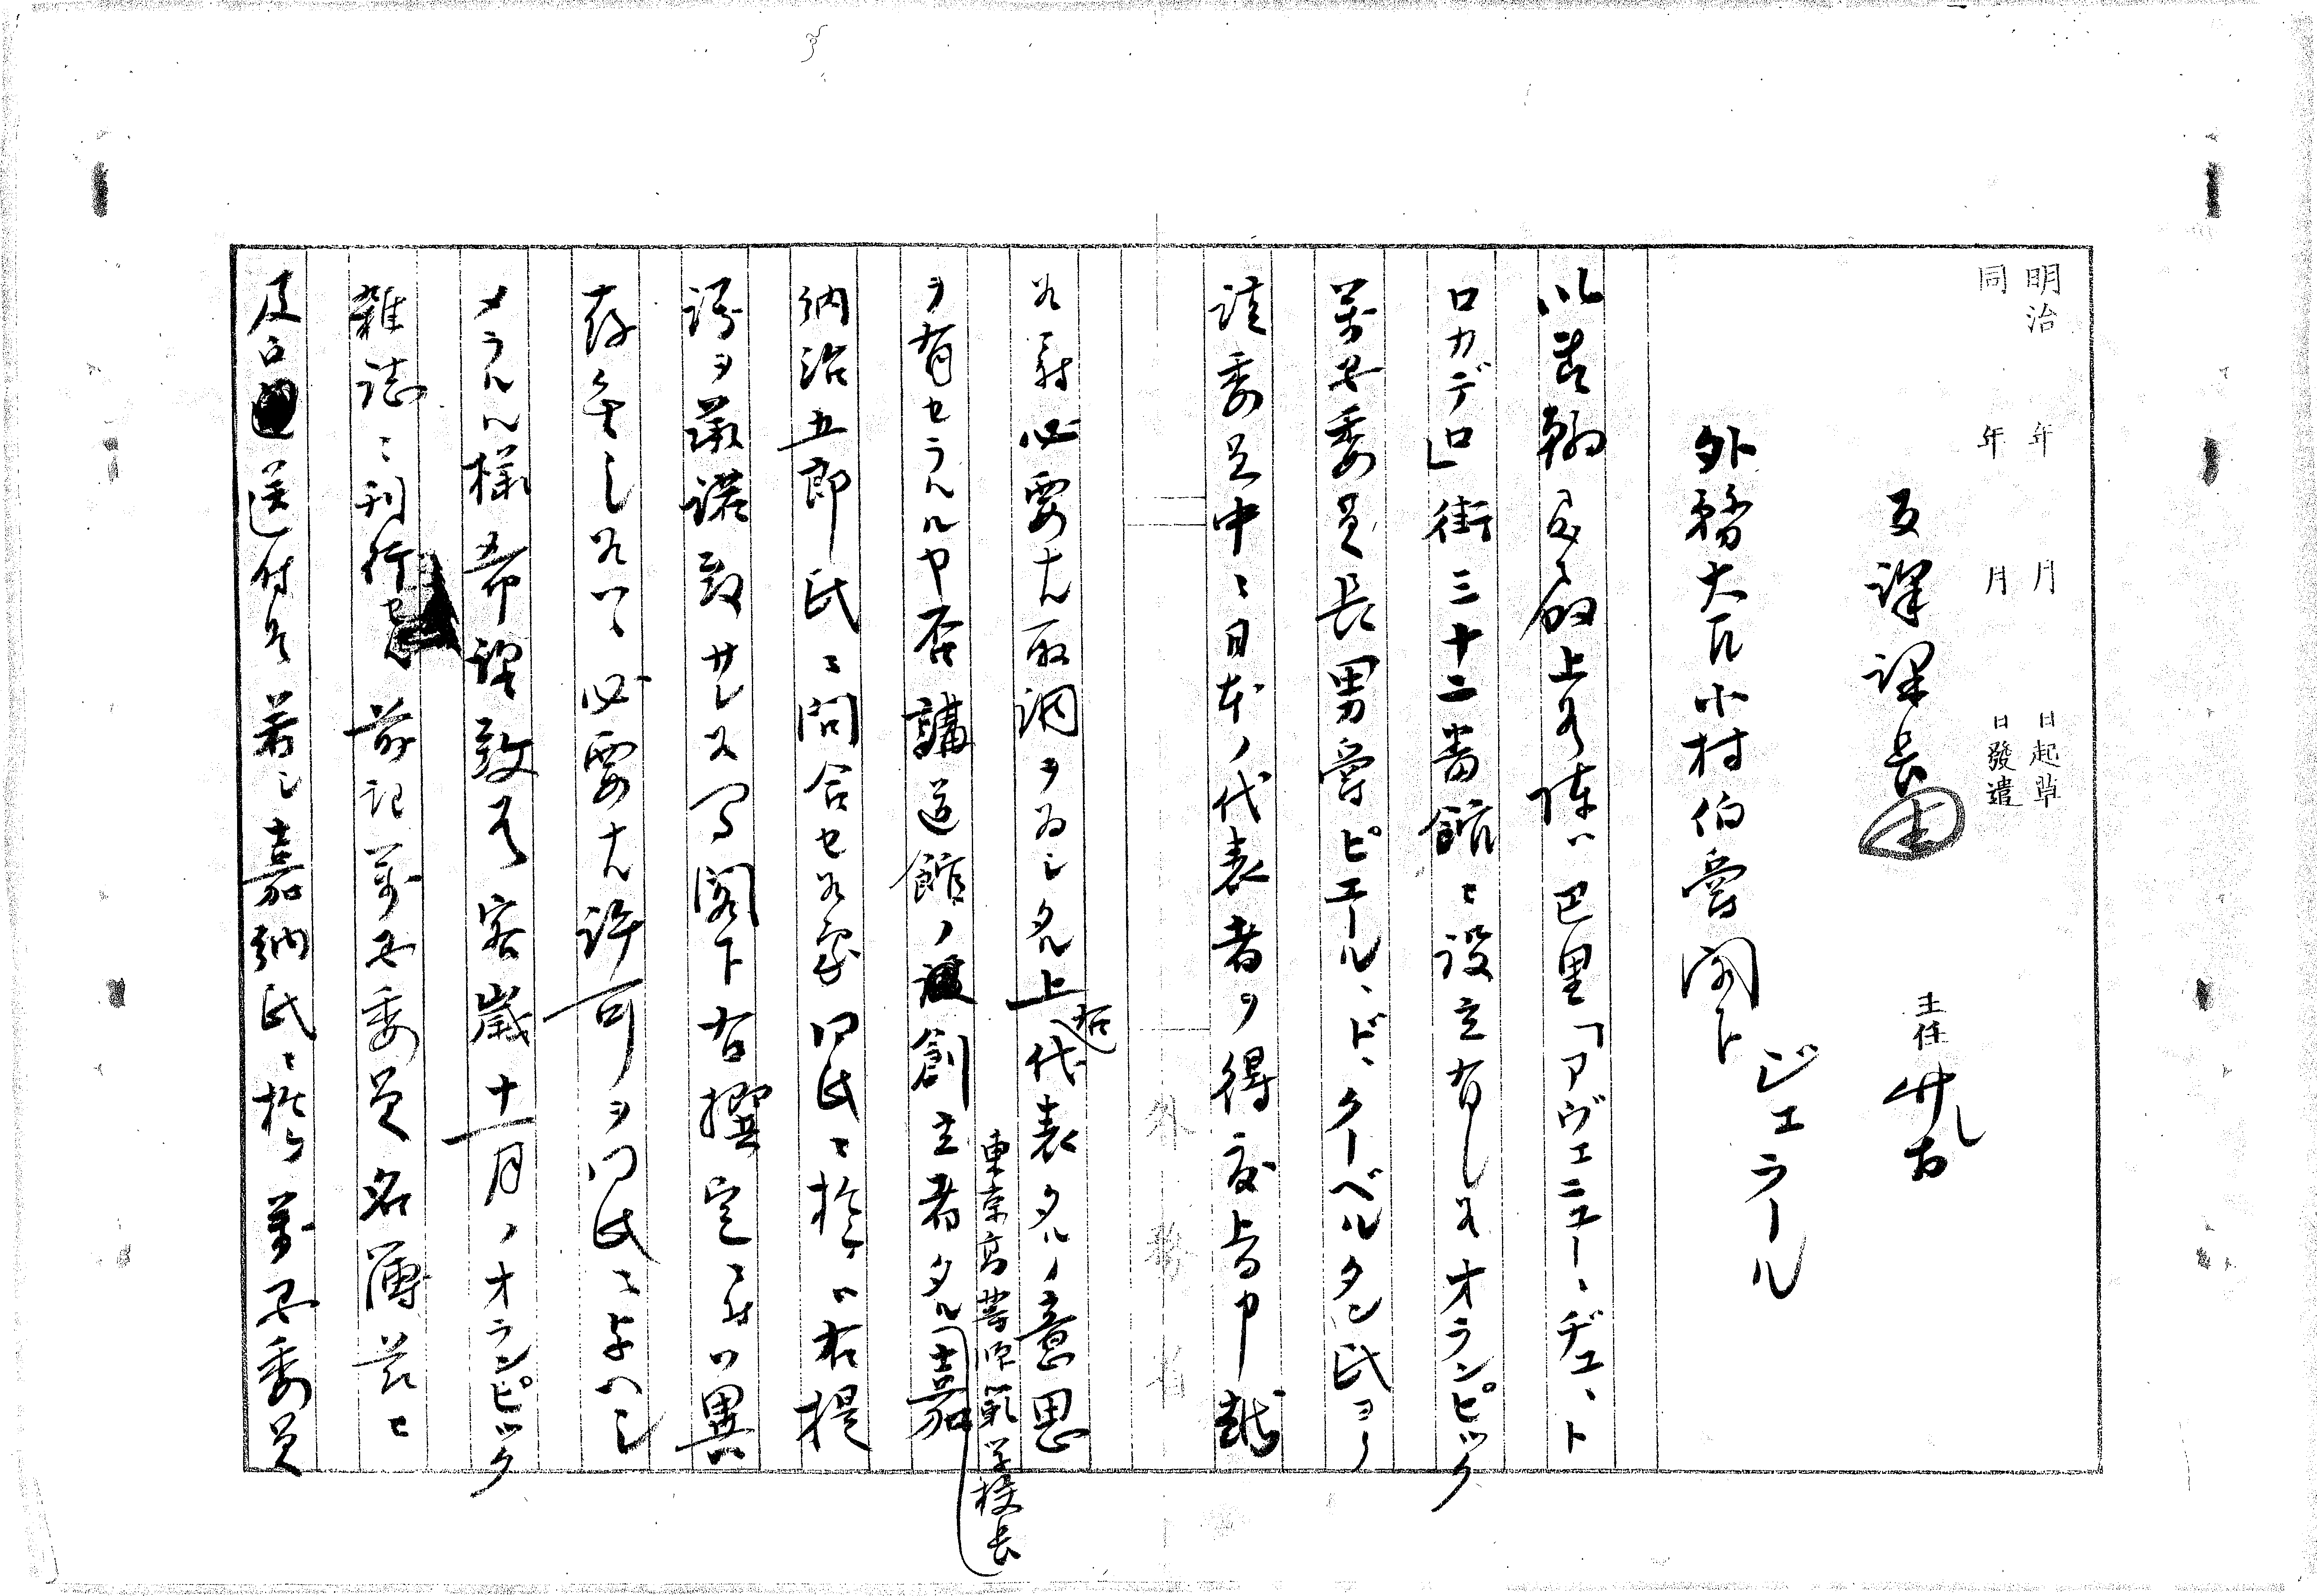 明治 年 月 日起草
同 年 月 日發遣
主任
反譯課長
ジェラール
外務大臣小村伯爵閣下
以書翰啓上候陳ハ巴里「アヴェニュー、デュ、ト
ロカデロ」街三十二番館ニ設立有之候オランピック
萬国委員長男爵ピエール、ド、クーベルタン氏ヨリ
該委員中ニ日本ノ代表者ヲ得度旨申越
外務省
候ニ付必要ナル取調ヲ為シタル上右代表タルノ意思
ヲ有セラルルヤ否講道館ノ創立者タル東京高等師範学校長嘉
納治五郎氏ニ問合セ候処同氏ニ於テハ右提
議ヲ承諾致サレ候間閣下右撰定ニ付ハ異
存無之候ハヽ必要ナル許可ヲ同氏ニ与ヘシ
メラルル様希望致候客歳十一月ノオランピック
雑誌ニ刊行セル前記萬国委員名簿茲ニ
及送付候若シ嘉納氏ニ於テ萬国委員